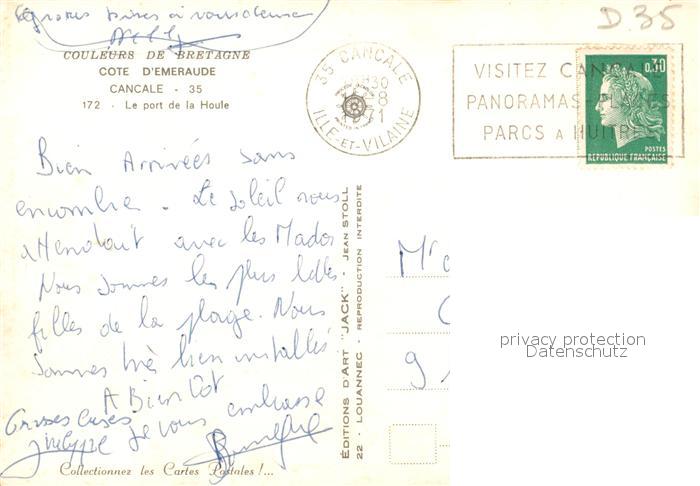 COULEURS DE BRETAGNE
COTE D'EMERAUDE
CANCALE - 35
172 - Le port de la Houle
D.35
35 CANCALE
1971
ILLE-ET-VILAINE
VISITEZ CANCALE
PANORAMAS - PLAGES
PARCS A HUITRES
0,30
POSTES
REPUBLIQUE FRANÇAISE
Bien Arrivées sans
encombre. Le soleil nous
attendait avec les Mados
Nous sommes les plus belles
filles de la plage. Nous
sommes très bien installés
A Bientôt
Grosses bises
je vous embrasse
Collectionnez les Cartes Postales !...
ÉDITIONS D'ART "JACK" - JEAN STOLL
22 - LOUANNEC - REPRODUCTION INTERDITE
M
9
privacy protection
Datenschutz